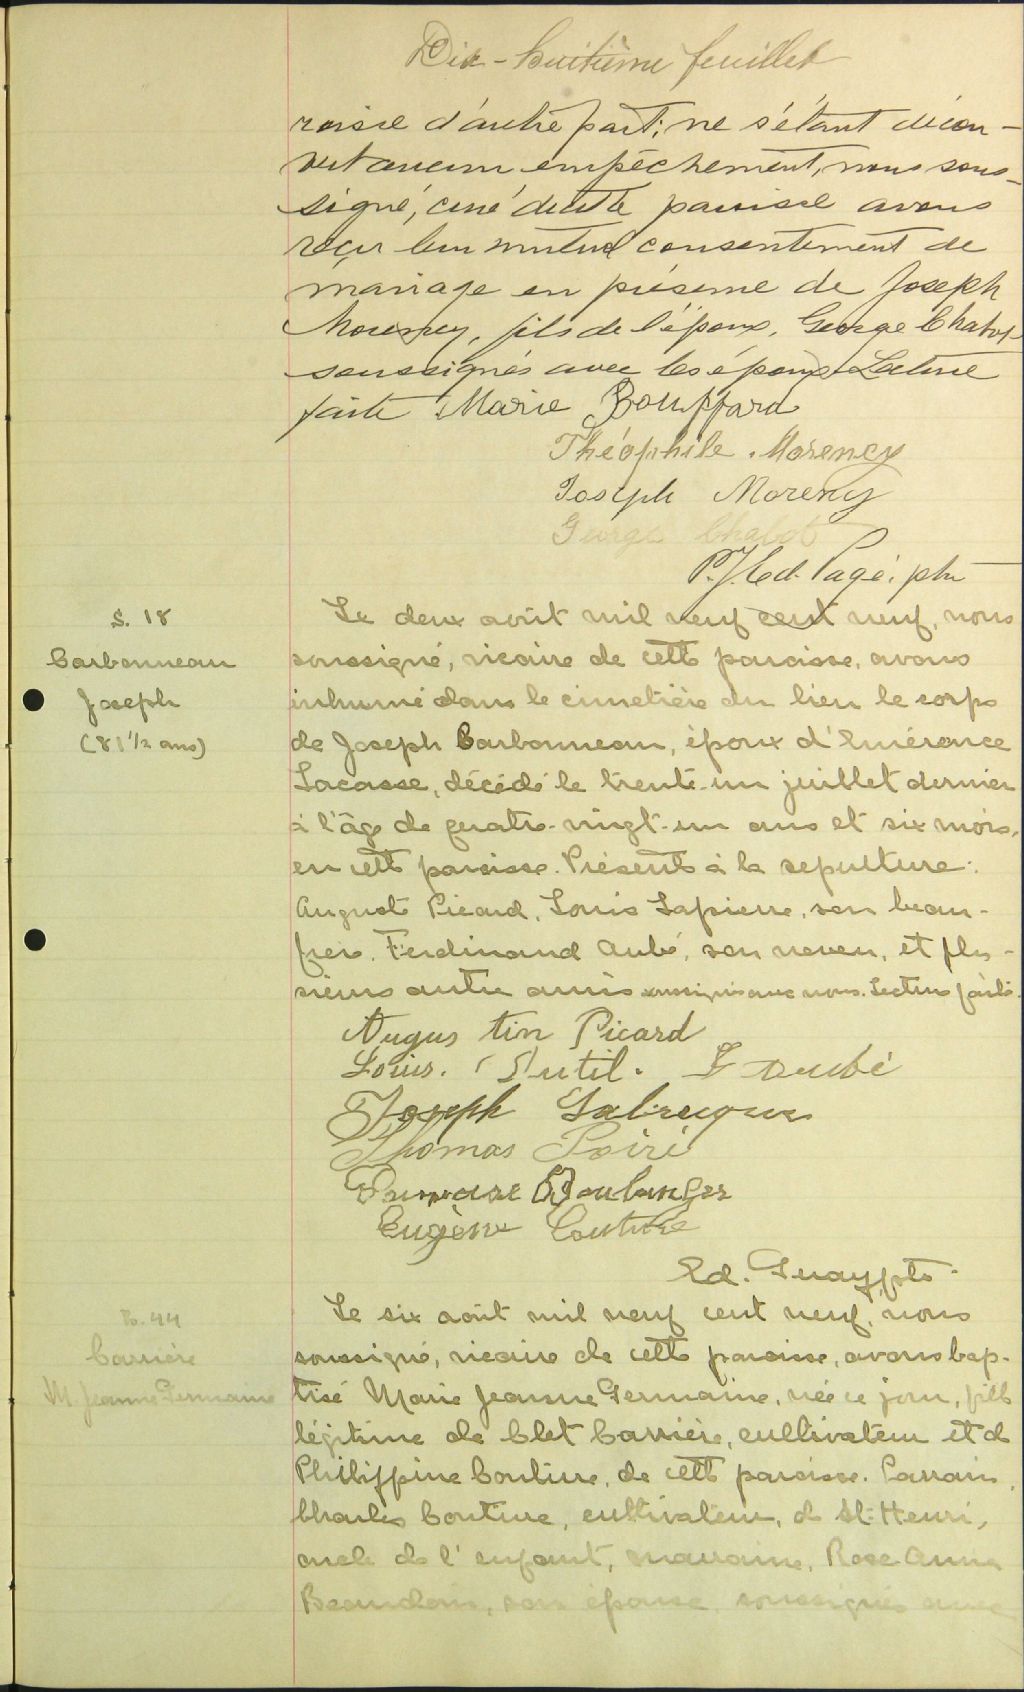 Dix-huitième feuillet
roisse d'autre part; ne s'étant décou-
vert aucun empêchement, nous sous-
signé, curé de cette paroisse avons
reçu leur mutuel consentement de
mariage en présence de Joseph
Morency, fils de l'époux, George Chabot
soussignés avec les époux. Lecture
faite Marie Bouffard
Théophile Morency
Joseph Morency
George Chabot
Pagé, ptre
S. 18
Carbonneau
Joseph
(81 1/2 ans)
Le deux août mil neuf cent neuf, nous
soussigné, vicaire de cette paroisse, avons
inhumé dans le cimetière du lieu le corps
de Joseph Carbonneau, époux d'Emérence
Lacasse, décédé le trente-un juillet dernier
à l'âge de quatre-vingt-un ans et six mois,
en cette paroisse. Présents à la sepulture:
August Picard, Louis Lapierre, son beau-
frère, Ferdinand Aubé, son neveu, et plu-
sieurs autre amis soussignés avec nous. Lecture faite.
Augus tin Picard
Louis. Dutil. F Aubé
Joseph Labrecque
Thomas Poiré
Boulanger
Eugène Couture
Ed. Guay ptre
B. 44
Carrière
M. Jeanne Germaine
Le six août mil neuf cent neuf, nous
soussigné, vicaire de cette paroisse, avons bap-
tisé Marie Jeanne Germaine, née ce jour, fille
légitime de Clet Carrière, cultivateur et de
Philippine Couture, de cette paroisse. Parrain,
Charles Couture, cultivateur, de St-Henri,
oncle de l'enfant, marraine, Rose Anna
Beaudoin, son épouse soussignés avec